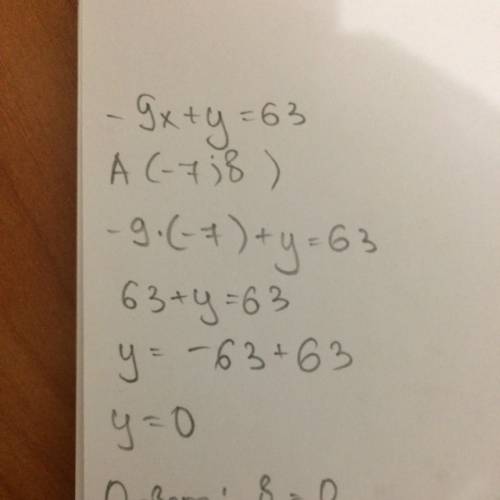 -9x+y=63
A(-7;8)
-9·(-7)+y=63
63+y=63
y=-63+63
y=0
8=0